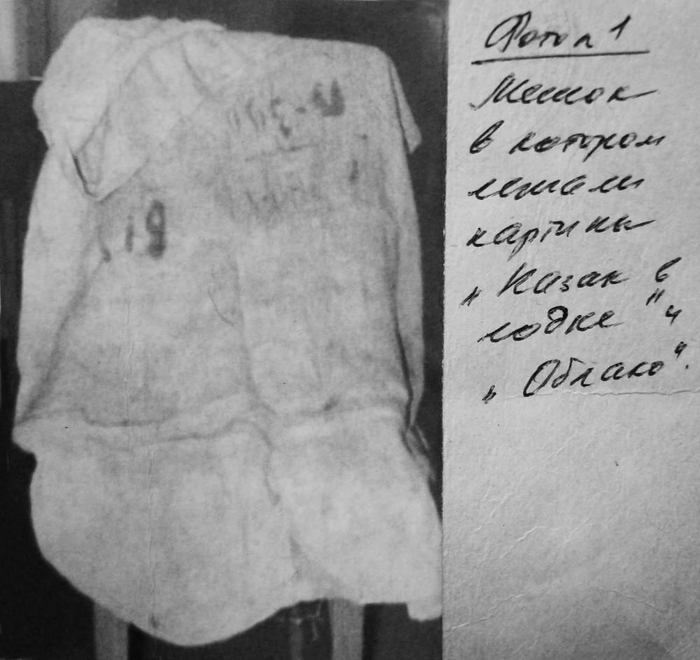 Фото n 1
Мешок
в котором
лежали
картины
„Казак в
лодке" и
„Облако".